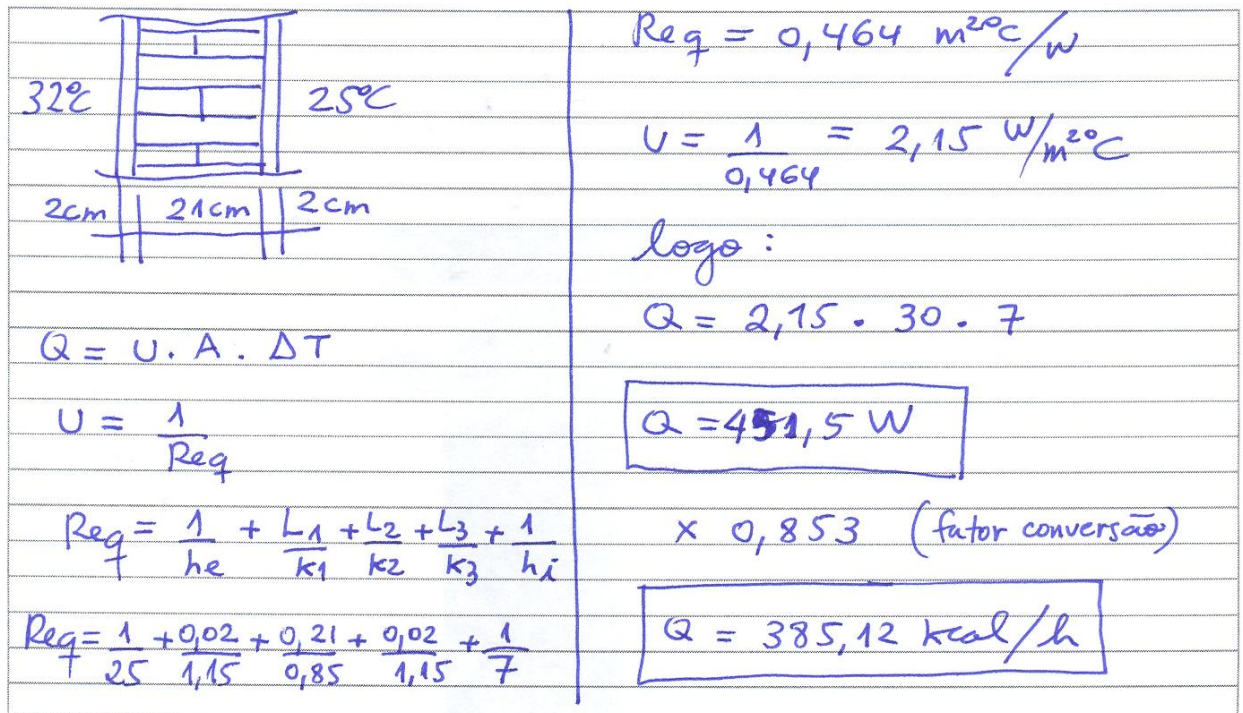 32°C 25°C
2cm 21cm 2cm
Q = U . A . ΔT
U = 1/Req
Req = 1/he + L1/k1 + L2/k2 + L3/k3 + 1/hi
Req = 1/25 + 0,02/1,15 + 0,21/0,85 + 0,02/1,15 + 1/7
Req = 0,464 m²°C/W
U = 1/0,464 = 2,15 W/m²°C
logo :
Q = 2,15 . 30 . 7
Q = 451,5 W
× 0,853 (fator conversão)
Q = 385,12 kcal/h